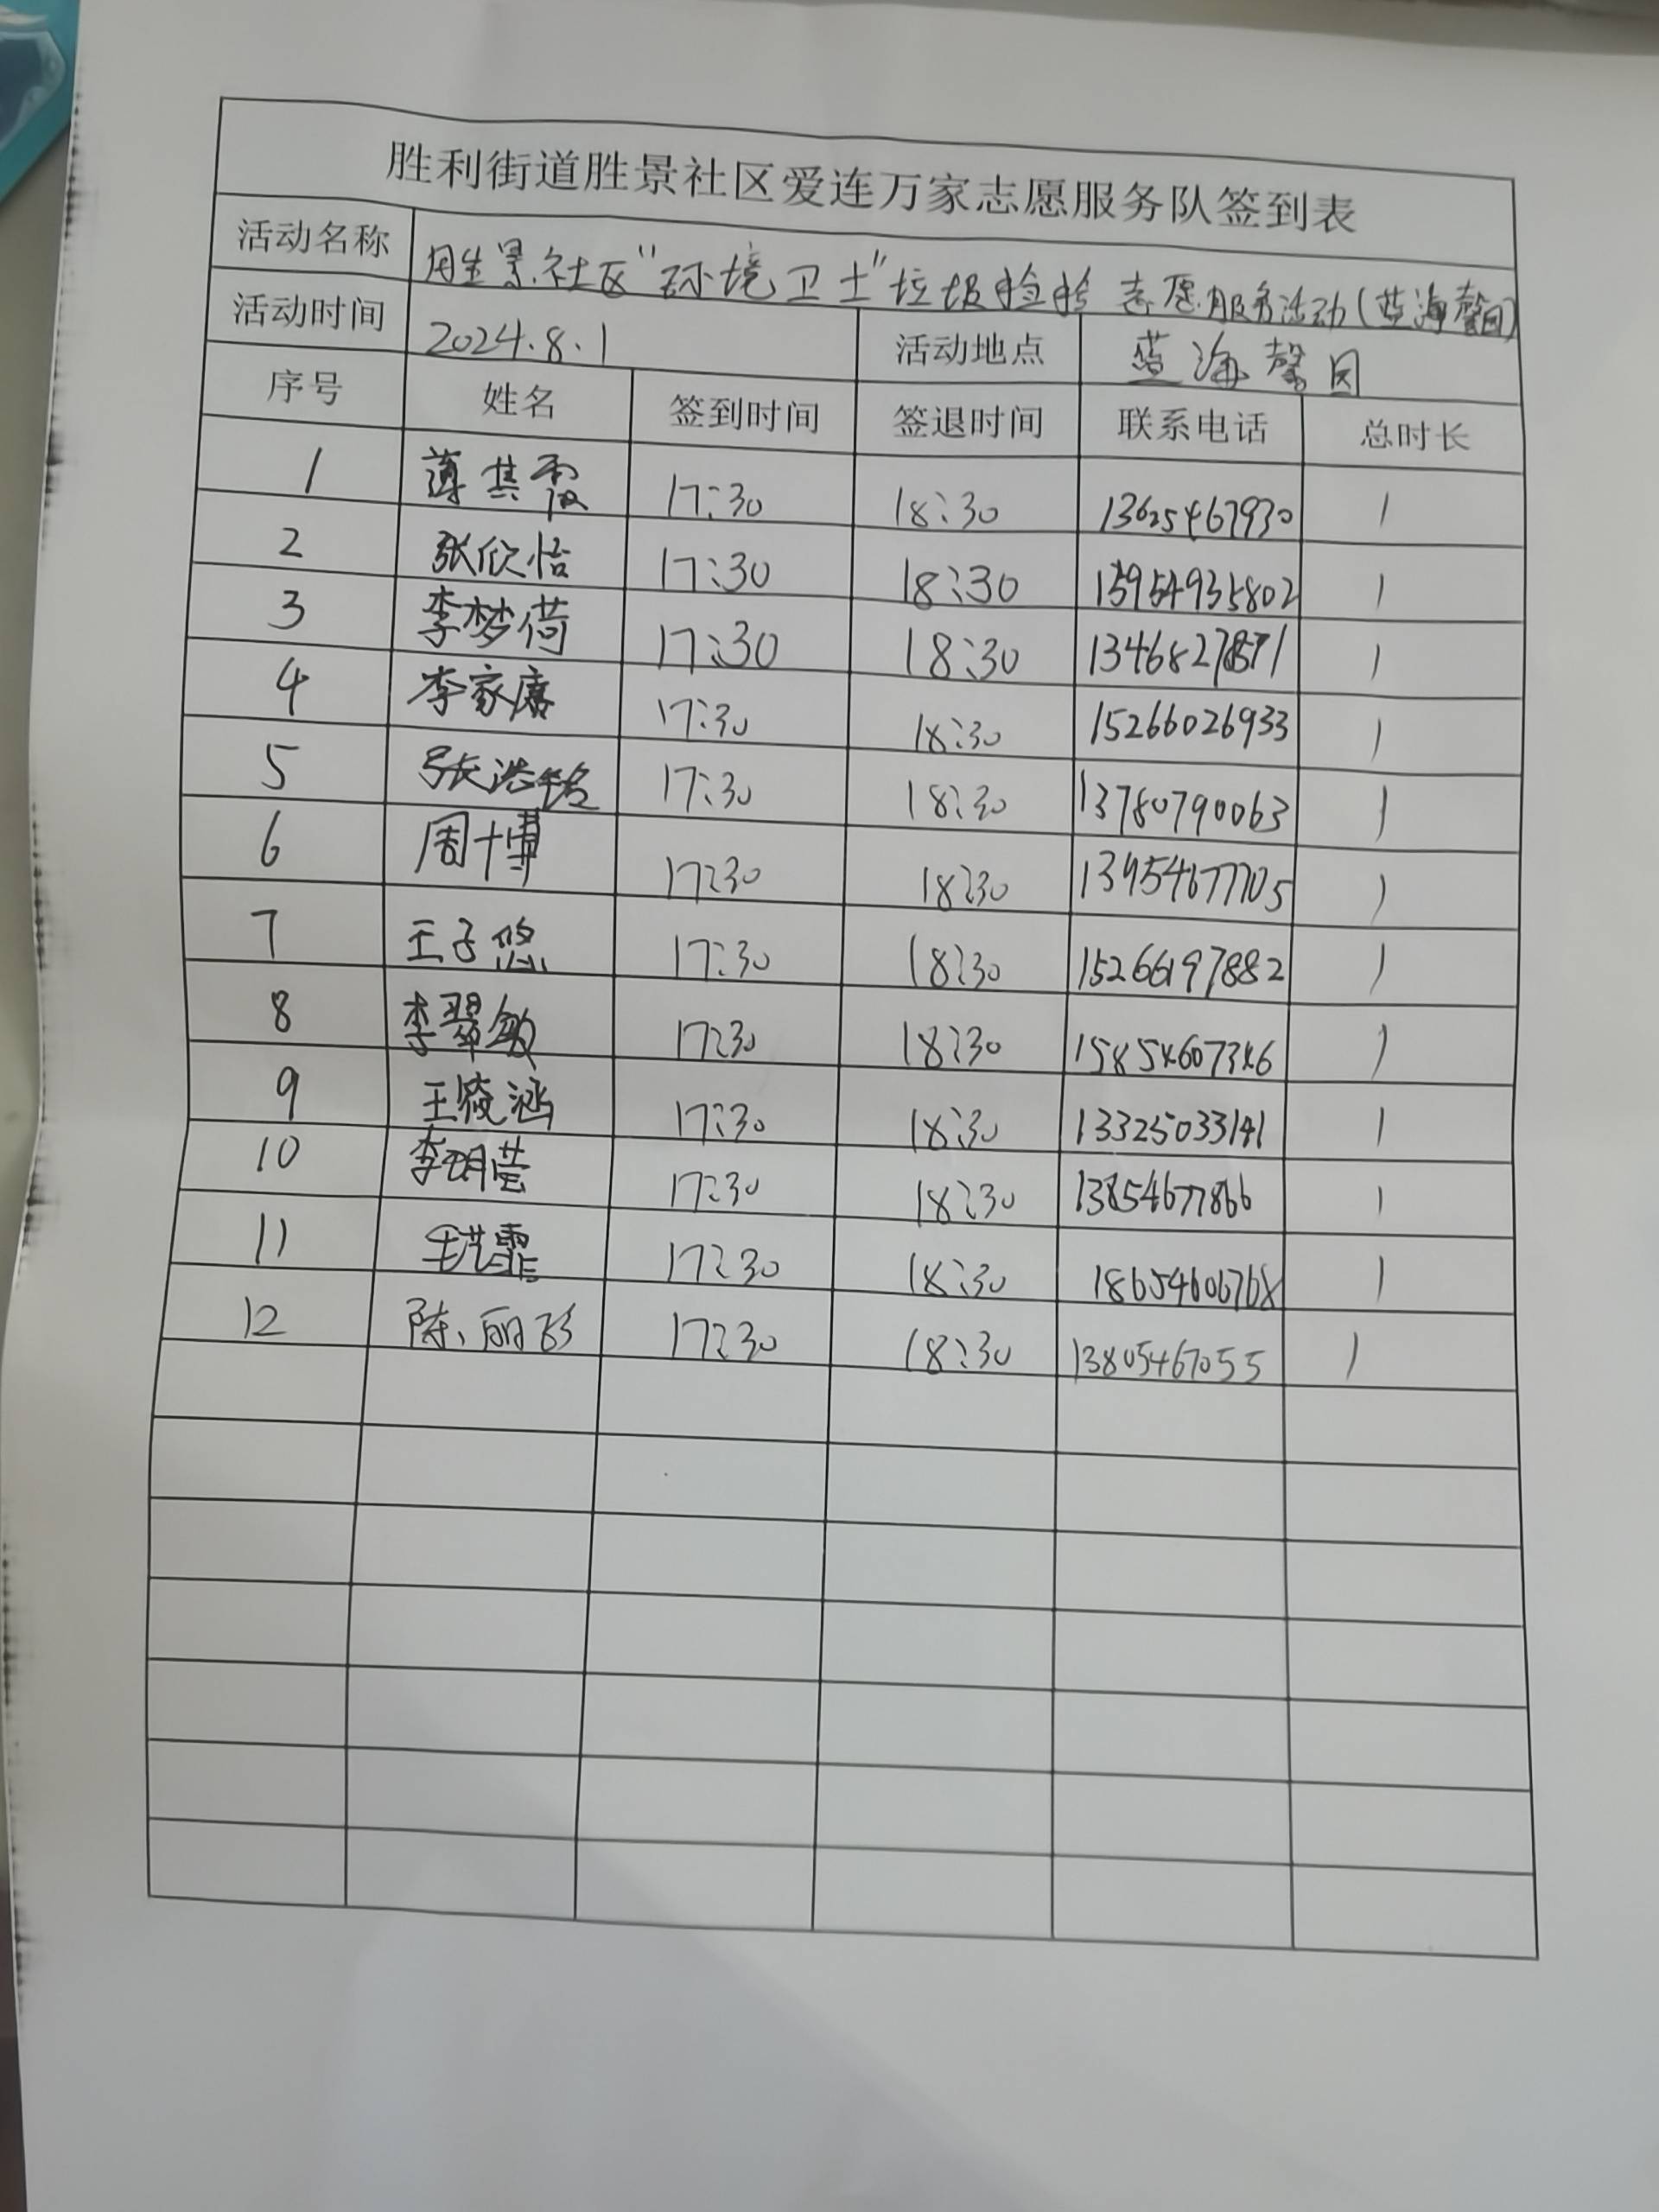 胜利街道胜景社区爱连万家志愿服务队签到表
活动名称 胜景社区"环境卫士"垃圾捡拾志愿服务活动(蓝海馨园)
活动时间 2024.8.1 活动地点 蓝海馨园
序号 姓名 签到时间 签退时间 联系电话 总时长
1 薄其霞 17:30 18:30 13625467930 1
2 张欣怡 17:30 18:30 15954935802 1
3 李梦荷 17:30 18:30 1
4 李家康 17:30 18:30 15266026933 1
5 张浩铭 17:30 18:30 13780790063 1
6 周十博 17:30 18:30 13954677705 1
7 王子悠 17:30 18:30 15266197882 1
8 李翠敏 17:30 18:30 15854607346 1
9 王筱涵 17:30 18:30 13325033141 1
10 李玥莹 17:30 18:30 13854677866 1
11 17:30 18:30 18654606768 1
12 陈丽珍 17:30 18:30 13805467055 1